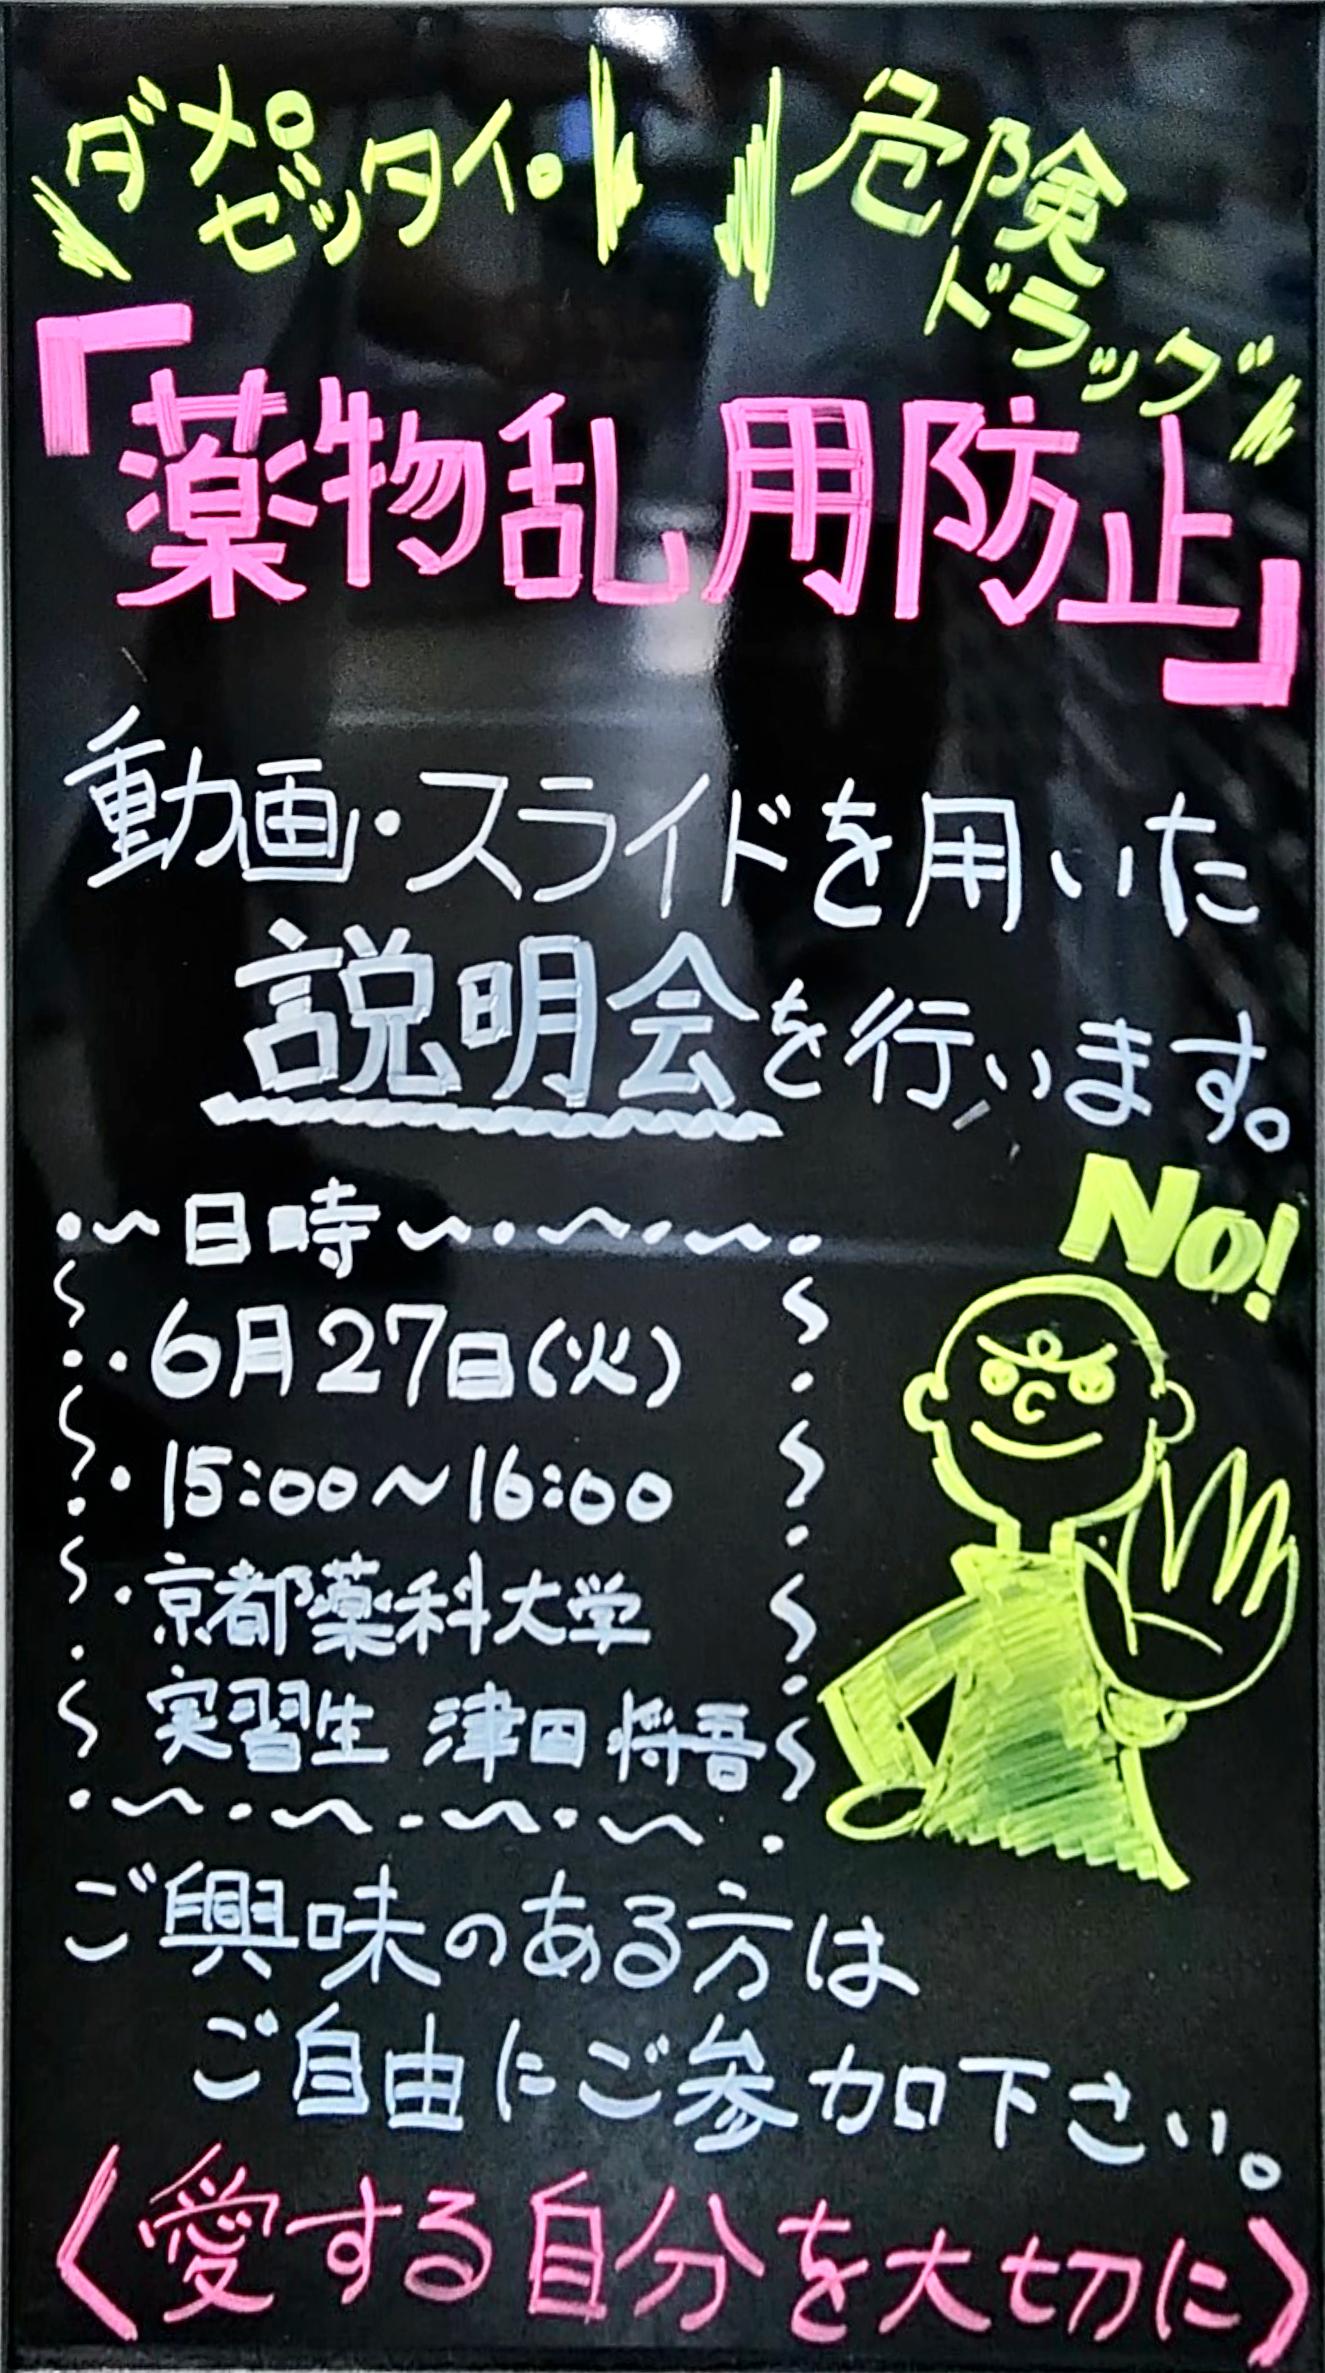 ダメ。ゼッタイ。
危険ドラッグ
『薬物乱用防止』
動画・スライドを用いた
説明会を行います。
日時
・6月27日(火)
・15:00～16:00
・京都薬科大学
実習生 津田 将吾
No!
ご興味のある方は
ご自由にご参加下さい。
〈愛する自分を大切に〉